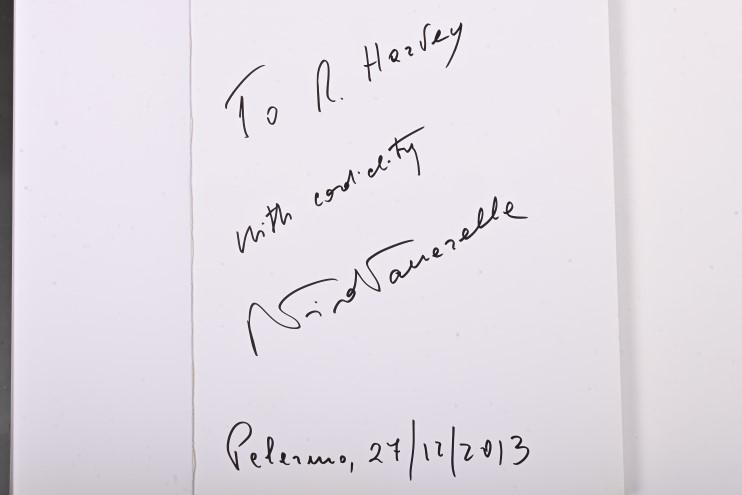 To R. Harvey
with cordiality
Nino Vaccarella
Palermo, 27/12/2013